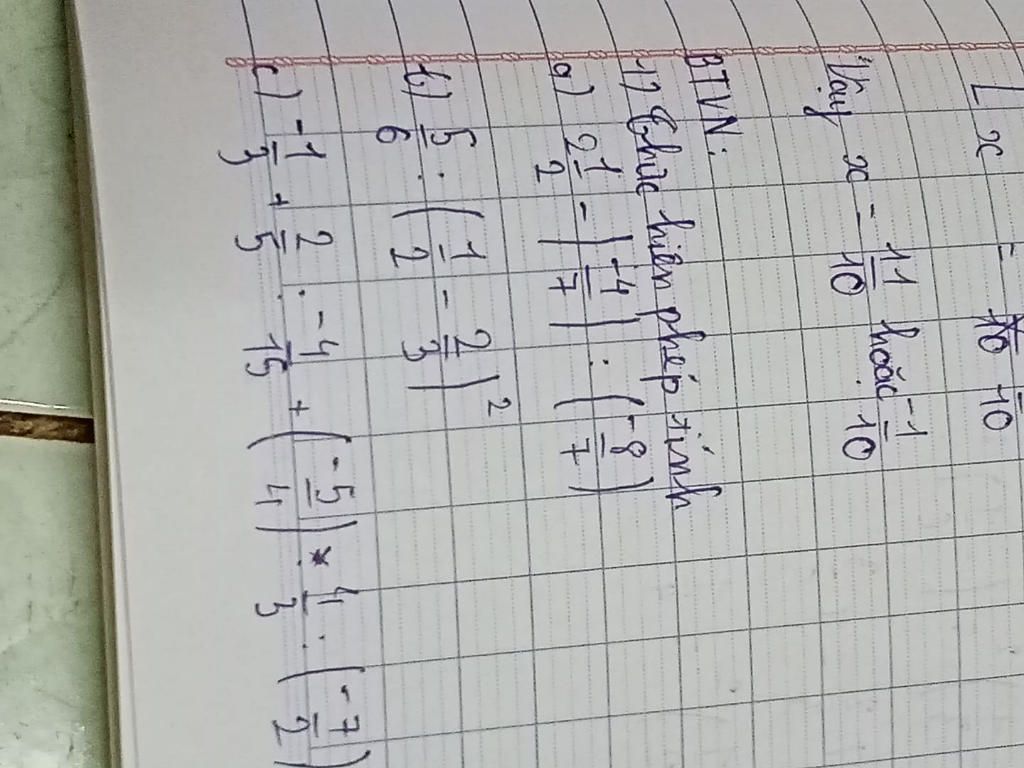 x = 1/10
Vậy x = 11/10 hoặc -1/10
BTVN:
1) Thực hiện phép tính
a) 2 1/2 - |-4/7| : (-8/7)
b) 5/6 : (1/2 - 2/3)²
c) -1/3 + 2/5 . -4/15 + (-5/4) : 4/3 . (-7/2)